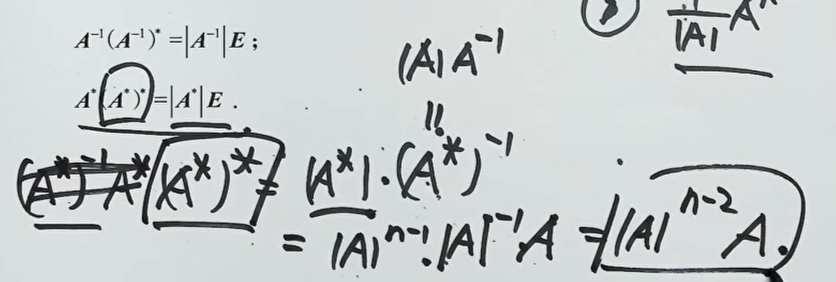 A⁻¹(A⁻¹)* = |A⁻¹|E；
A*(A*)* = |A*|E．
|A|A⁻¹
||
(A*)⁻¹A*(A*)* = |A*|·(A*)⁻¹
= |A|ⁿ⁻¹·|A|⁻¹A = |A|ⁿ⁻²A.